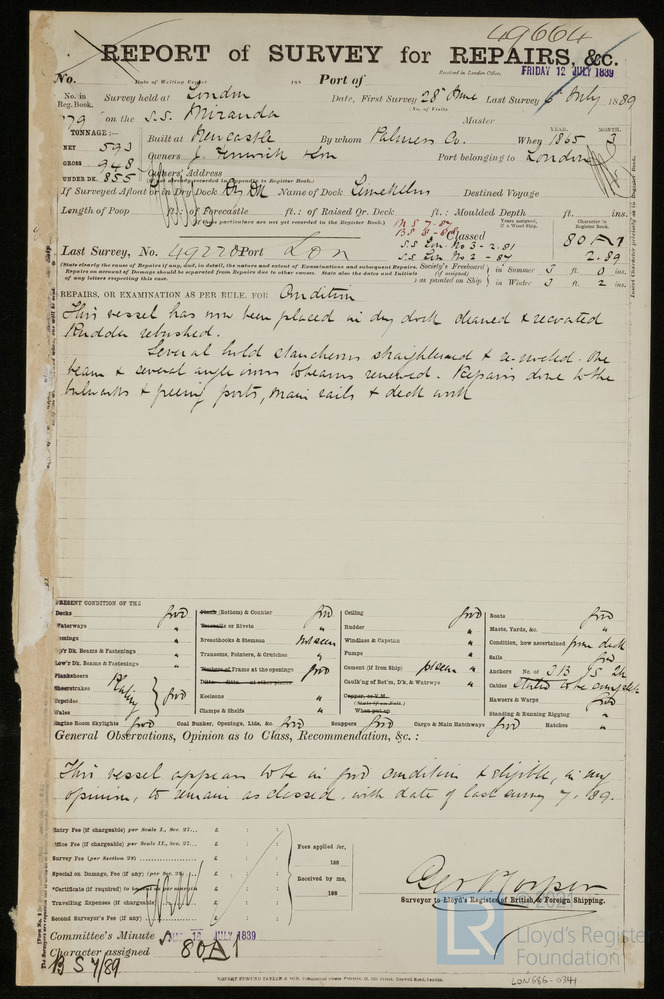 49664
REPORT of SURVEY for REPAIRS, &c.
No. Date of Writing Report 188 Port of Received in London Office, FRIDAY 12 JULY 1889
No. in Reg. Book. Survey held at London Date, First Survey 28th June Last Survey 6th July 1889
No. of Visits
79 on the S.S. Miranda Master
TONNAGE:— Built at Newcastle By whom Palmers Co. When YEAR. 1865 MONTH. 3
NET 593
GROSS 948 Owners J. Fenwick & Son Port belonging to London
UNDER DK. 855 Owners' Address
(if not already recorded in Appendix to Register Book.)
If Surveyed Afloat or in Dry Dock Dry Dk Name of Dock Limekilns Destined Voyage
Length of Poop ft.: of Forecastle ft.: of Raised Qr. Deck ft.: Moulded Depth ft. ins.
(If these particulars are not yet recorded in the Register Book.)
Years assigned, if a Wood Ship. Character in Register Book.
Classed 80 A 1
Last Survey, No. 49220 Port Lon S.S. Lon No 3 - 2.81 2.89
S.S. Lon No 2 - 87
(State clearly the cause of Repairs if any, and, in detail, the nature and extent of Examinations and subsequent Repairs.
Repairs on account of Damage should be separated from Repairs due to other causes. State also the dates and Initials
of any letters respecting this case.
Society's Freeboard (if assigned) as painted on Ship in Summer 3 ft. 0 ins.
in Winter 3 ft. 2 ins.
REPAIRS, OR EXAMINATION AS PER RULE. FOR Condition
This vessel has now been placed in dry dock cleaned & recoated
Rudder rebushed.
Several hold stanchions straightened & re-riveted. One
beam & several angle irons to beams renewed. Repairs done to the
bulwarks & freeing ports, main rails & deck work
PRESENT CONDITION OF THE
Decks good Plank (Bottom) & Counter good Ceiling good Boats good
Waterways " Treenails or Rivets " Rudder " Masts, Yards, &c. "
Breasthooks & Stemson Not seen Windlass & Capstan " Condition, how ascertained from deck
Up'r Dk. Beams & Fastenings " Transoms, Pointers, & Crutches " Pumps " Sails good
Low'r Dk. Beams & Fastenings " Timbers of Frame at the openings good Cement (if Iron Ship) " Anchors No. of 3 B 1 S 2 K
Planksheers Ditto Ditto at other places Caulk'ng of Bot'm, D'k, & Wat'rwys " Cables Stated to be complete
Sheerstrakes Plating good Keelsons " Copper, or Y.M. Hawsers & Warps good
Topsides Clamps & Shelfs " (State if on Felt.) Standing & Running Rigging "
Wales When put on
Engine Room Skylights good Coal Bunker, Openings, Lids, &c. good Scuppers good Cargo & Main Hatchways good Hatches "
General Observations, Opinion as to Class, Recommendation, &c.:
This vessel appears to be in good condition & eligible, in my
opinion, to remain as classed, with date of last survey 7. 89.
Entry Fee (if chargeable) per Scale I., Sec. 27... £ : :
Office Fee (if chargeable) per Scale II., Sec. 27... £ : : Fees applied for,
Survey Fee (per Section 28) £ : : 188
Special or Damage Fee (if any) (per Sec. 28) £ : : Received by me,
*Certificate (if required) to be sent as per margin £ : : 188
Travelling Expenses (if chargeable) £ : :
Second Surveyor's Fee (if any) £ : :
Surveyor to Lloyd's Register of British & Foreign Shipping.
Committee's Minute 12 JULY 1889
Character assigned 80 A 1
B S 7/89
ROBERT EDMUND TAYLOR & SON
© 2021
LR Lloyd's Register
Foundation
LON686-0341